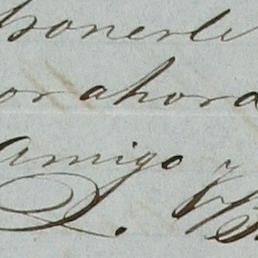 ponerle
or ahora
Amigo y
Q.